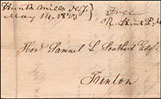 Hunts Mills N.J.
May 14. 1823
Free
Hon. Samuel L. Southard Esq.
Trenton